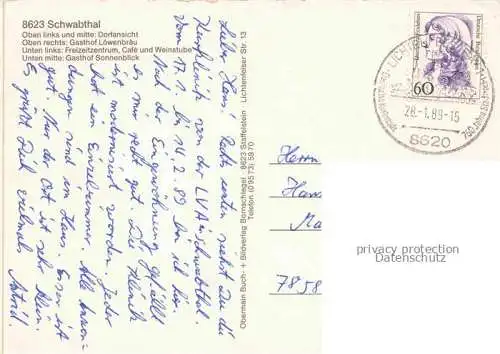 8623 Schwabthal
Oben links und mitte: Dorfansicht
Oben rechts: Gasthof Löwenbräu
Unten links: Freizeitzentrum, Café und Weinstube
Unten mitte: Gasthof Sonnenblick
Lieber Hans! Rechts unten siehst Du die
Kurklinik von der LVA in Schwabthal.
Vom 17.1. bis 14.2.89 bin ich hier.
Nach der Eingewöhnung gefällt
es mir recht gut. Die Klinik
ist modernisiert worden. Jeder
hat ein Einzelzimmer. Alle
sind im Haus. Essen ist
gut. Nur der Ort ist sehr klein.
Es grüßt Dich vielmals
Astrid.
Obermain Buch- + Bildverlag Bornschlegel · 8623 Staffelstein · Lichtenfelser Str. 13
Telefon (09573) 5870
Deutsche Bundespost
60
28.-1.89-15
8620
Herrn
Hans
Ma
7858
privacy protection
Datenschutz